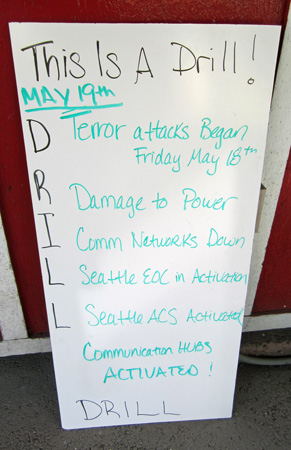 This Is A Drill!
MAY 19th
DRILL
Terror attacks Began
Friday May 18th
Damage to Power
Comm Networks Down
Seattle EOC in Activation
Seattle ACS Activated
Communication HUBS
ACTIVATED!
DRILL